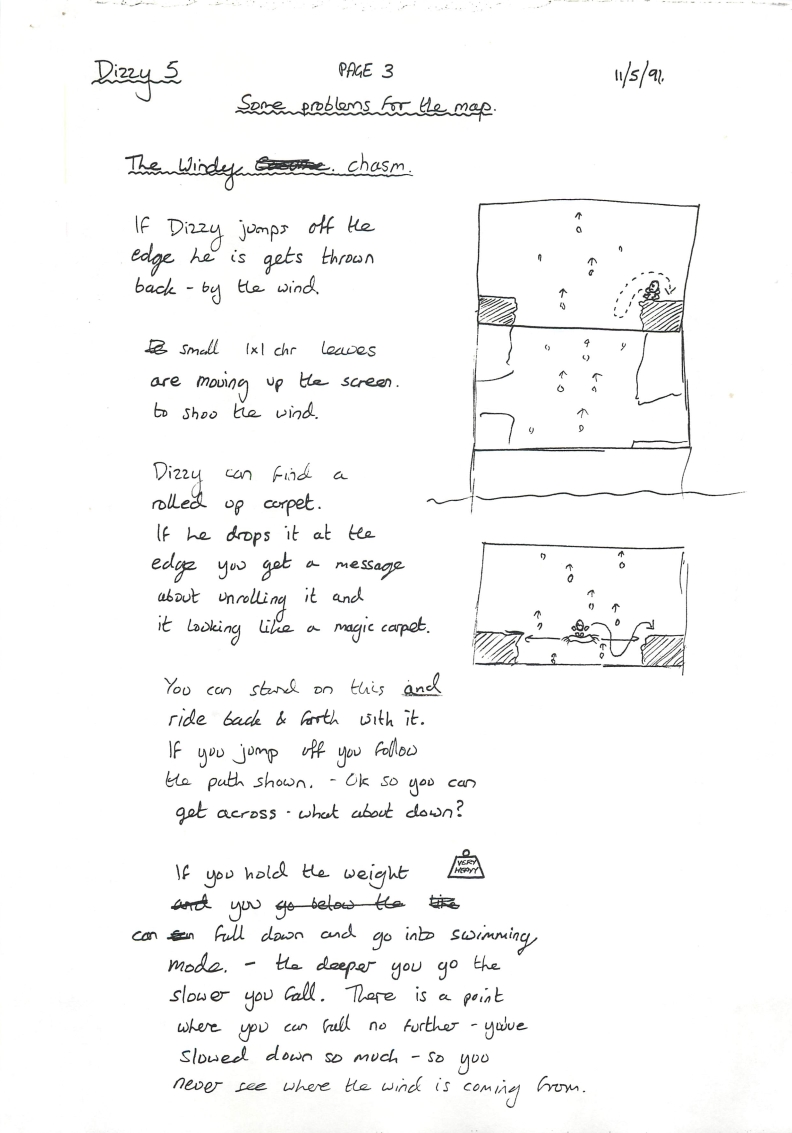 Dizzy 5 PAGE 3 11/5/91.
Some problems for the map.
The Windy chasm.
If Dizzy jumps off the
edge he is gets thrown
back - by the wind.
small 1x1 chr leaves
are moving up the screen.
to shoo the wind.
Dizzy can find a
rolled up carpet.
If he drops it at the
edge you get a message
about unrolling it and
it looking like a magic carpet.
You can stand on this and
ride back & forth with it.
If you jump off you follow
the path shown. - Ok so you can
get across - what about down?
If you hold the weight
VERY
HEAVY
and you go below the
can fall down and go into swimming
mode. - the deeper you go the
slower you fall. There is a point
where you can fall no further - you've
slowed down so much - so you
never see where the wind is coming from.